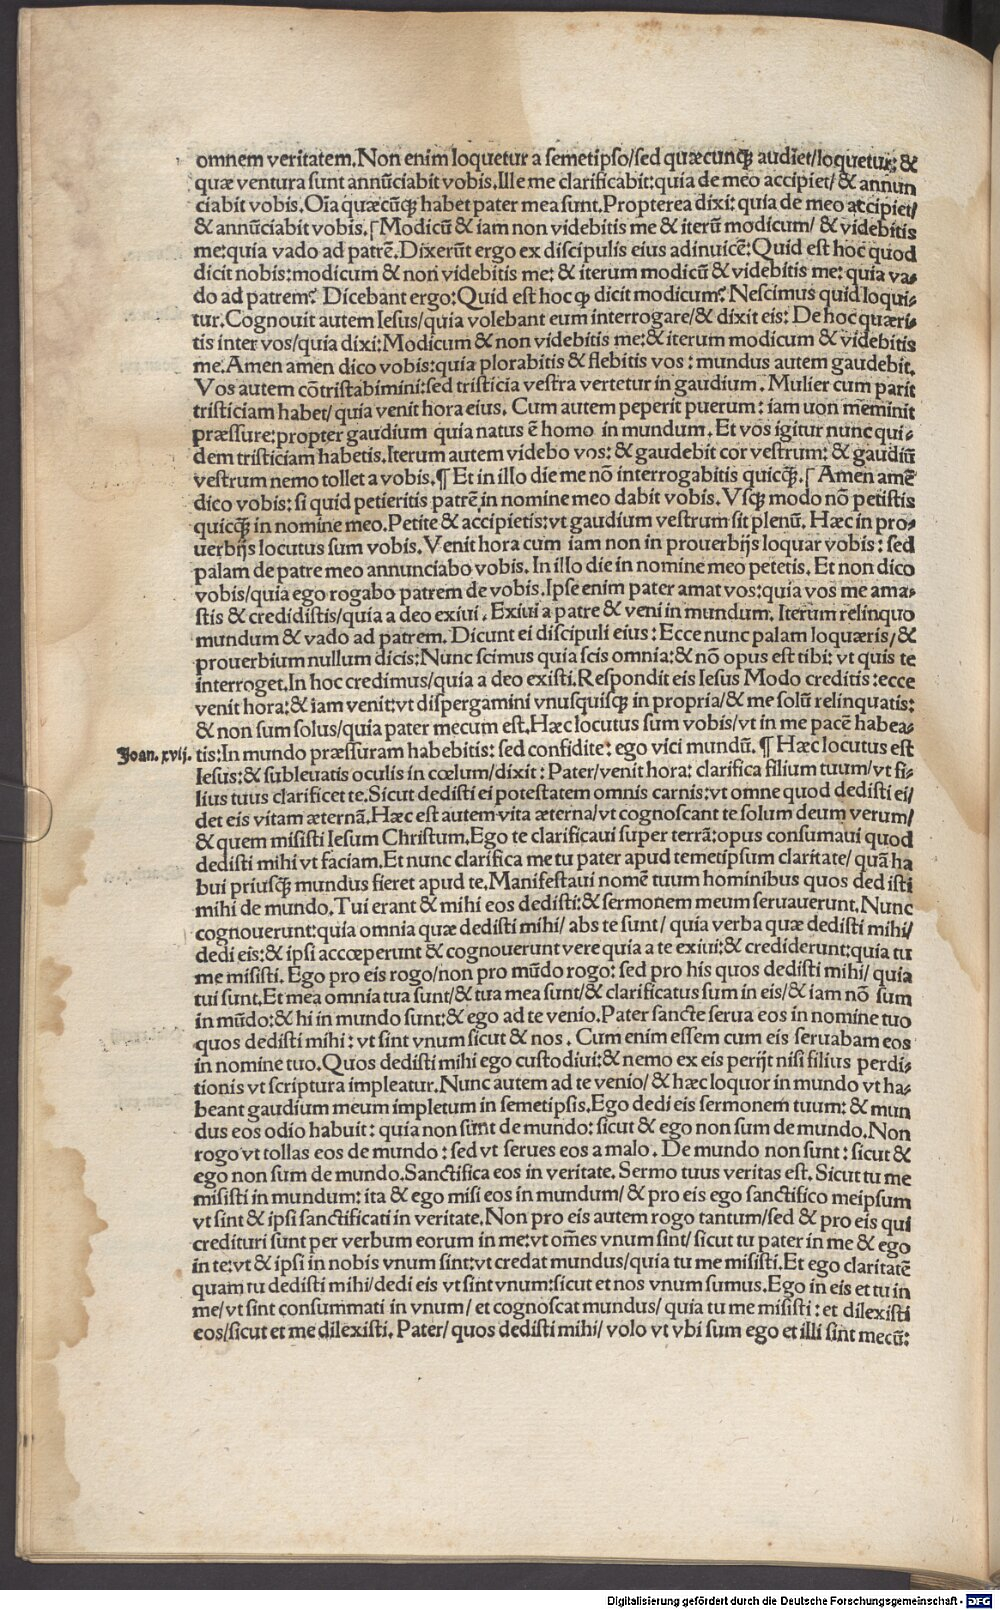 omnem veritatem.Non enim loquetur a semetipso/sed quæcunqꝫ audiet/loquetur: &
quæ ventura sunt annũciabit vobis.Ille me clarificabit:quia de meo accipiet/ & annun
ciabit vobis.Oĩa quæcũqꝫ habet pater mea sunt.Propterea dixi: quia de meo accipiet/
& annũciabit vobis.⌈Modicũ & iam non videbitis me & iterũ modicum/ & videbitis
me:quia vado ad patrẽ.Dixerũt ergo ex discipulis eius adinuicẽ:Quid est hoc quod
dicit nobis:modicum & non videbitis me: & iterum modicũ & videbitis me: quia va⸗
do ad patrem? Dicebant ergo:Quid est hoc ꝙ dicit modicum? Nescimus quid loqui⸗
tur.Cognouit autem Iesus/quia volebant eum interrogare/& dixit eis: De hoc quæri⸗
tis inter vos/quia dixi:Modicum & non videbitis me:& iterum modicum & videbitis
me.Amen amen dico vobis:quia plorabitis & flebitis vos : mundus autem gaudebit.
Vos autem cõtristabimini:sed tristicia vestra vertetur in gaudium . Mulier cum parit
tristiciam habet/ quia venit hora eius. Cum autem peperit puerum : iam uon meminit
præssure:propter gaudium quia natus ẽ homo in mundum. Et vos igitur nunc qui⸗
dem tristiciam habetis.Iterum autem videbo vos: & gaudebit cor vestrum: & gaudiũ
vestrum nemo tollet a vobis.¶ Et in illo die me nõ interrogabitis quicqꝫ.⌈Amen amẽ
dico vobis: si quid petieritis patrẽ in nomine meo dabit vobis.Vsqꝫ modo nõ petistis
quicqꝫ in nomine meo.Petite & accipietis:vt gaudium vestrum sit plenũ. Hæc in pro⸗
uerbijs locutus sum vobis.Venit hora cum iam non in prouerbijs loquar vobis : sed
palam de patre meo annunciabo vobis. In illo die in nomine meo petetis. Et non dico
vobis/quia ego rogabo patrem de vobis.Ipse enim pater amat vos:quia vos me ama⸗
stis & credidistis/quia a deo exiui . Exiui a patre & veni in mundum. Iterum relinquo
mundum & vado ad patrem. Dicunt ei discipuli eius : Ecce nunc palam loquæris/ &
prouerbium nullum dicis:Nunc scimus quia scis omnia:& nõ opus est tibi: vt quis te
interroget.In hoc credimus/quia a deo existi.Respondit eis Iesus Modo creditis : ecce
venit hora:& iam venit:vt dispergamini vnusquisqꝫ in propria/& me solũ relinquatis:
& non sum solus/quia pater mecum est.Hæc locutus sum vobis/vt in me pacẽ habea⸗
Joan. xvij. tis:In mundo præssuram habebitis: sed confidite: ego vici mundũ.¶ Hæc locutus est
Iesus:& subleuatis oculis in cœlum/dixit : Pater/venit hora: clarifica filium tuum/vt fi⸗
lius tuus clarificet te.Sicut dedisti ei potestatem omnis carnis:vt omne quod dedisti ei/
det eis vitam æternã.Hæc est autem vita æterna/vt cognoscant te solum deum verum/
& quem misisti Iesum Christum.Ego te clarificaui super terrã:opus consumaui quod
dedisti mihi vt faciam.Et nunc clarifica me tu pater apud temetipsum claritate/ quã ha
bui priusqꝫ mundus fieret apud te.Manifestaui nomẽ tuum hominibus quos dedisti
mihi de mundo.Tui erant & mihi eos dedisti:& sermonem meum seruauerunt.Nunc
cognouerunt:quia omnia quæ dedisti mihi/ abs te sunt/ quia verba quæ dedisti mihi/
dedi eis:& ipsi accœperunt & cognouerunt vere quia a te exiui:& crediderunt:quia tu
me misisti. Ego pro eis rogo/non pro mũdo rogo: sed pro his quos dedisti mihi/ quia
tui sunt.Et mea omnia tua sunt/& tua mea sunt/& clarificatus sum in eis/& iam nõ sum
in mũdo:& hi in mundo sunt:& ego ad te venio.Pater sancte serua eos in nomine tuo
quos dedisti mihi : vt sint vnum sicut & nos . Cum enim essem cum eis seruabam eos
in nomine tuo.Quos dedisti mihi ego custodiui:& nemo ex eis perijt nisi filius perdi⸗
tionis vt scriptura impleatur.Nunc autem ad te venio/ & hæc loquor in mundo vt ha⸗
beant gaudium meum impletum in semetipsis.Ego dedi eis sermonem tuum: & mun
dus eos odio habuit: quia non sunt de mundo: sicut & ego non sum de mundo.Non
rogo vt tollas eos de mundo : sed vt serues eos a malo . De mundo non sunt : sicut &
ego non sum de mundo.Sanctifica eos in veritate. Sermo tuus veritas est. Sicut tu me
misisti in mundum: ita & ego misi eos in mundum/ & pro eis ego sanctifico meipsum
vt sint & ipsi sanctificati in veritate.Non pro eis autem rogo tantum/sed & pro eis qui
credituri sunt per verbum eorum in me:vt om̃es vnum sint/ sicut tu pater in me & ego
in te:vt & ipsi in nobis vnum sint:vt credat mundus/quia tu me misisti.Et ego claritatẽ
quam tu dedisti mihi/dedi eis vt sint vnum:sicut et nos vnum sumus.Ego in eis et tu in
me/vt sint consummati in vnum/ et cognoscat mundus/ quia tu me misisti : et dilexisti
eos/sicut et me dilexisti. Pater/ quos dedisti mihi/ volo vt vbi sum ego et illi sint mecũ:
Digitalisierung gefördert durch die Deutsche Forschungsgemeinschaft - DFG